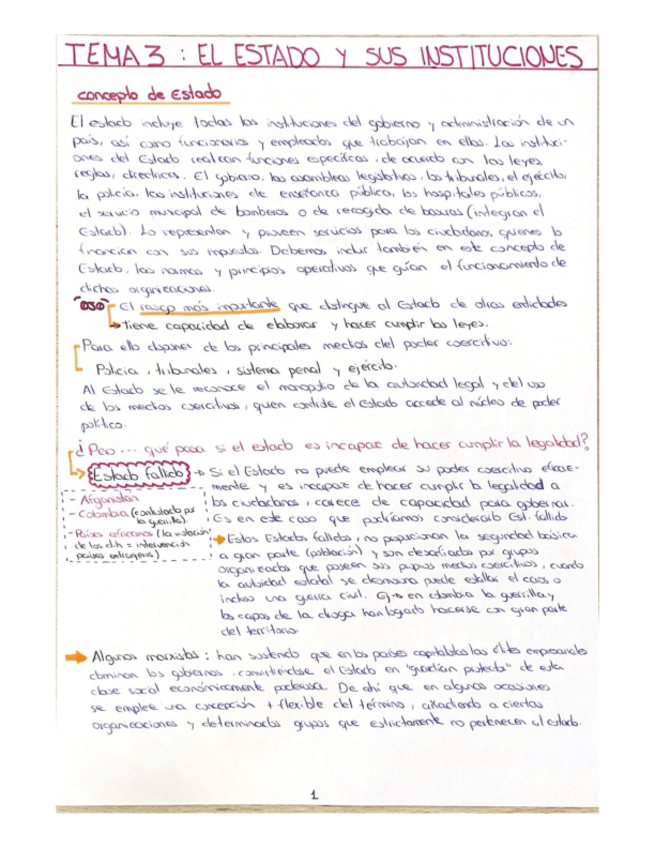 TEMA 3 : EL ESTADO Y SUS INSTITUCIONES
concepto de Estado
El estado incluye todas las instituciones del gobierno y administración de un
país, así como funcionarios y empleados que trabajan en ellas. Las instituci-
ones del Estado realizan funciones específicas, de acuerdo con las leyes,
reglas, directrices. El gobierno, las asambleas legislativas, los tribunales, el ejército,
la policía, las instituciones de enseñanza pública, los hospitales públicos,
el servicio municipal de bomberos o de recogida de basuras (integran el
Estado). Lo representan y proveen servicios para los ciudadanos, quienes lo
financian con sus impuestos. Debemos incluir también en este concepto de
Estado, las normas y principios operativos que guían el funcionamiento de
dichas organizaciones.
El rasgo más importante que distingue al Estado de otras entidades
tiene capacidad de elaborar y hacer cumplir las leyes.
Para ello disponen de los principales medios del poder coercitivo:
Policía, tribunales, sistema penal y ejército.
Al Estado se le reconoce el monopolio de la autoridad legal y del uso
de los medios coercitivos, quien controle el Estado accede al núcleo de poder
político.
¿Pero... qué pasa si el estado es incapaz de hacer cumplir la legalidad?
Estado fallido → Si el Estado no puede emplear su poder coercitivo eficaz-
mente y es incapaz de hacer cumplir la legalidad a
los ciudadanos, carece de capacidad para gobernar.
Es en este caso que podríamos considerarlo Est. fallido
- Afganistán
- Colombia (controlado por
la guerrilla)
- Países africanos (la violación
de los d.h = intervención
países extranjeros)
Estos Estados fallidos, no proporcionan la seguridad básica
a gran parte (población) y son desafiados por grupos
organizados que poseen sus propios medios coercitivos, cuando
la autoridad estatal se desmorona puede estallar el caos o
incluso una guerra civil. Ej→ en colombia la guerrilla y
los capos de la droga han logrado hacerse con gran parte
del territorio.
Algunos marxistas : han sostenido que en los países capitalistas las élites empresariales
dominan los gobiernos, convirtiéndose el Estado en "guardián protector" de esta
clase social económicamente poderosa. De ahí que en algunas ocasiones
se emplee una concepción + flexible del término, añadiendo a ciertas
organizaciones y determinados grupos que estrictamente no pertenecen al estado.
1